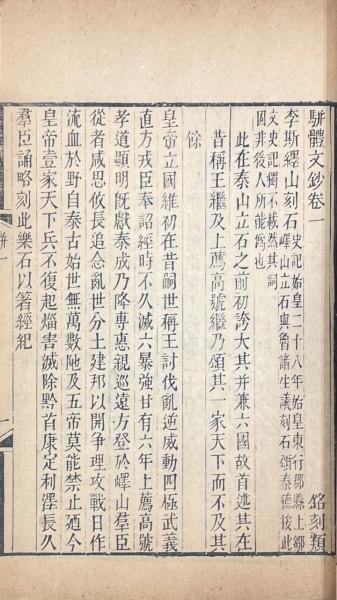 駢體文鈔卷一　銘刻類
李斯繹山刻石史記始皇二十八年始皇東行郡縣上鄒
嶧山立石與魯諸生議刻石頌秦德按此
文史記獨不載然其詞
固非後人所能爲也
此在泰山立石之前初誇大其并兼六國故首述其在
昔稱王繼及上薦高號繼乃頌其一家天下而不及其
餘
皇帝立國維初在昔嗣世稱王討伐亂逆威動四極武義
直方戎臣奉詔經時不久滅六暴強廿有六年上薦高號
孝道顯明旣獻泰成乃降專惠親巡遠方登於嶧山羣臣
從者咸思攸長追念亂世分土建邦以開爭理攻戰日作
流血於野自泰古始世無萬數阤及五帝莫能禁止廼今
皇帝壹家天下兵不復起災害滅除黔首康定利澤長久
羣臣誦略刻此樂石以箸經紀